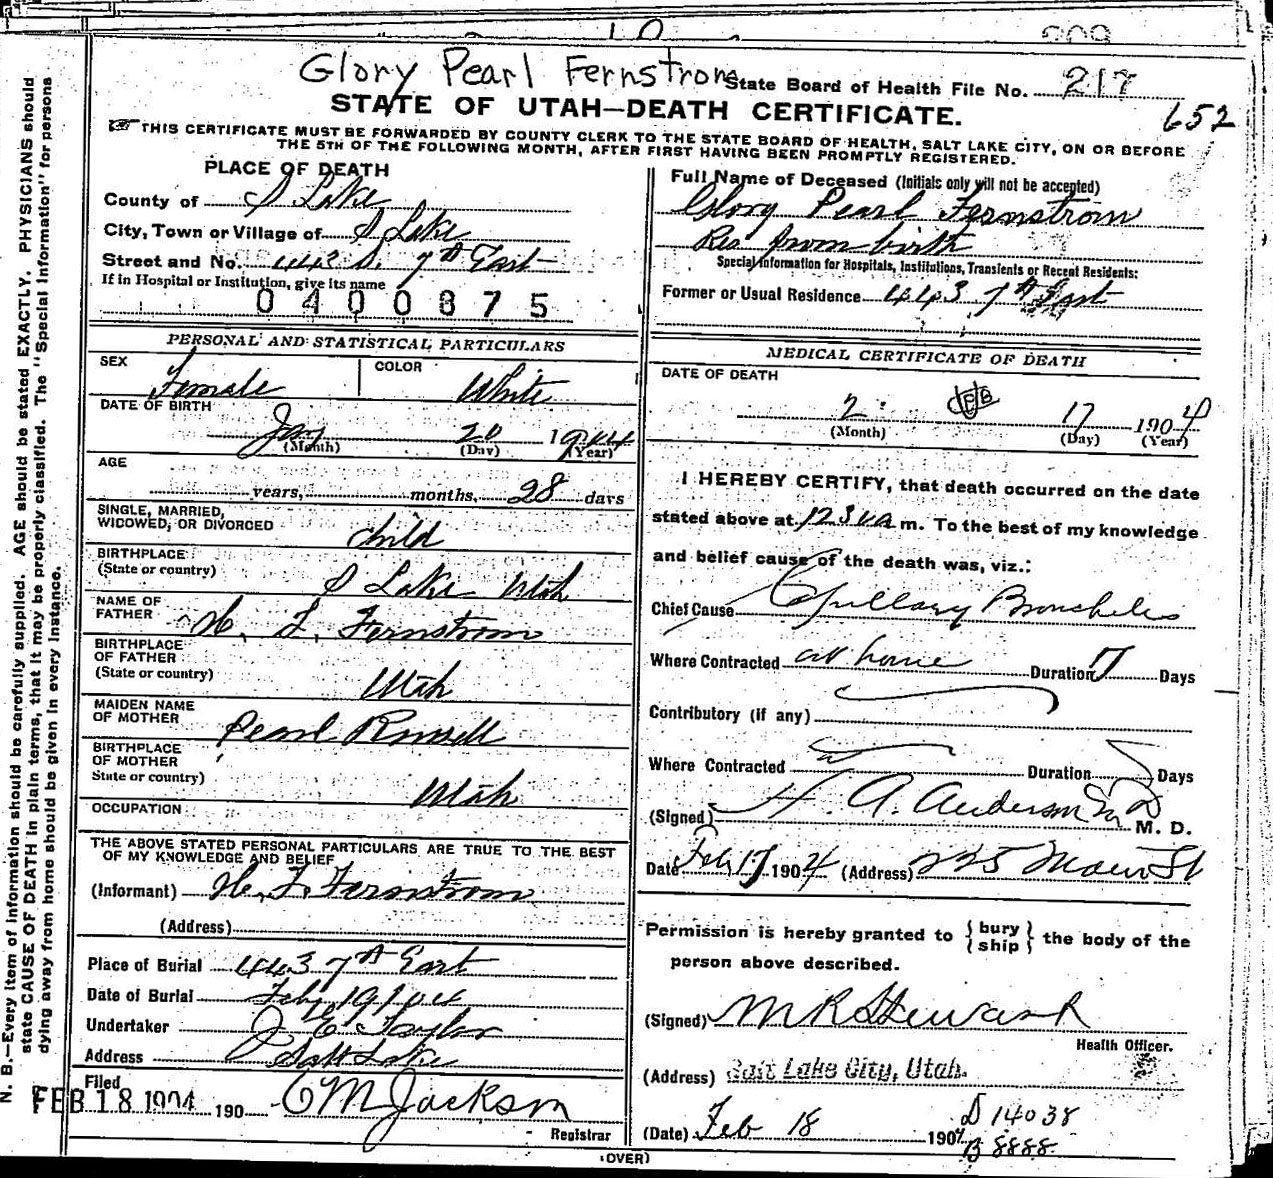 Glory Pearl Fernstrom
State Board of Health File No. 217
652
STATE OF UTAH—DEATH CERTIFICATE.
THIS CERTIFICATE MUST BE FORWARDED BY COUNTY CLERK TO THE STATE BOARD OF HEALTH, SALT LAKE CITY, ON OR BEFORE
THE 5TH OF THE FOLLOWING MONTH, AFTER FIRST HAVING BEEN PROMPTLY REGISTERED.
N. B.—Every item of information should be carefully supplied. AGE should be stated EXACTLY. PHYSICIANS should
state CAUSE OF DEATH in plain terms, that it may be properly classified. The "Special Information" for persons
dying away from home should be given in every instance.
PLACE OF DEATH
County of S Lake
City, Town or Village of S Lake
Street and No. 443 S. 7th East
If in Hospital or Institution, give its name
0400875
PERSONAL AND STATISTICAL PARTICULARS
SEX Female COLOR White
DATE OF BIRTH
Jan 20 1904
(Month) (Day) (Year)
AGE
years, months, 28 days
SINGLE, MARRIED,
WIDOWED, OR DIVORCED child
BIRTHPLACE
(State or country) S Lake Utah
NAME OF
FATHER H. F. Fernstrom
BIRTHPLACE
OF FATHER
(State or country) Utah
MAIDEN NAME
OF MOTHER Pearl
BIRTHPLACE
OF MOTHER
State or country) Utah
OCCUPATION
THE ABOVE STATED PERSONAL PARTICULARS ARE TRUE TO THE BEST
OF MY KNOWLEDGE AND BELIEF
(Informant) H. F. Fernstrom
(Address)
443 7th East
Place of Burial
Date of Burial Feby 19 1904
Undertaker J E Taylor
Address Salt Lake
Filed
FEB 18 1904 190 C M Jackson
Registrar
Full Name of Deceased (Initials only will not be accepted)
Glory Pearl Fernstrom
Res from birth
Special Information for Hospitals, Institutions, Transients or Recent Residents:
Former or Usual Residence 443 7th East
MEDICAL CERTIFICATE OF DEATH
DATE OF DEATH
2 17 1904
(Month) (Day) (Year)
I HEREBY CERTIFY, that death occurred on the date
stated above at 1230 a m. To the best of my knowledge
and belief cause of the death was, viz.:
Chief Cause Capillary Bronchitis
Where Contracted at home Duration 7 Days
Contributory (if any)
Where Contracted Duration Days
(Signed) H. A. Anderson M. D.
Date Feb 17 1904 (Address) 225 Main St
Permission is hereby granted to {bury
ship} the body of the
person above described.
(Signed) M R Stewart
Health Officer.
(Address) Salt Lake City, Utah.
(Date) Feb 18 1904
D 14038
B 8888
(OVER)